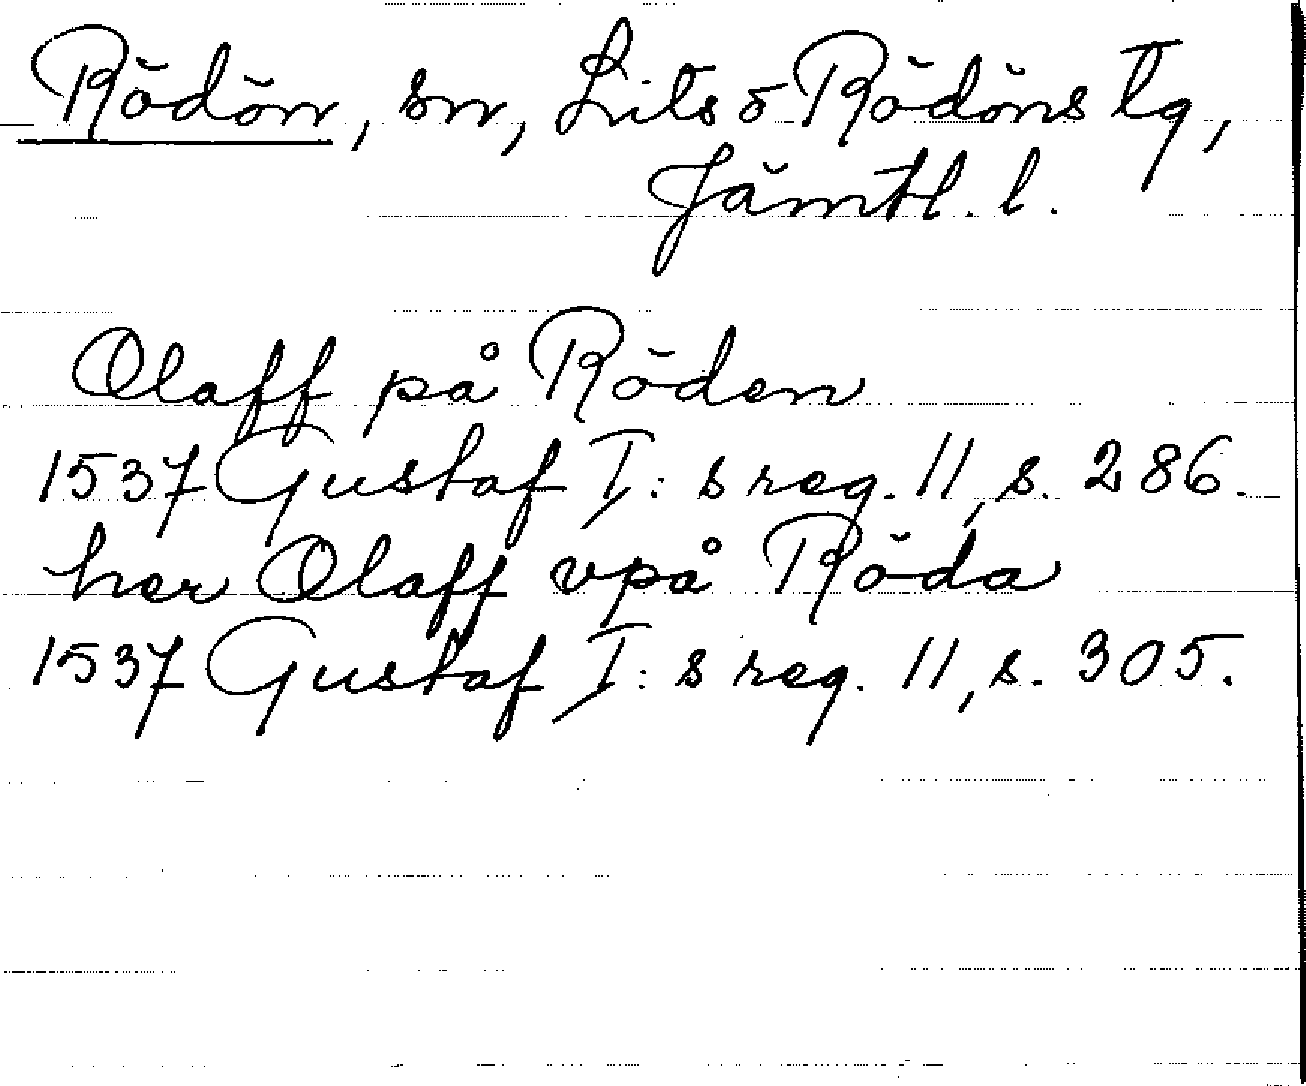 Rödön, sn, Lits o Rödöns tg,
Jämtl. l.
Olaff på Röden
1537 Gustaf I:s reg. 11, s. 286.
her Olaff vpå Röda
1537 Gustaf I:s reg. 11, s. 305.